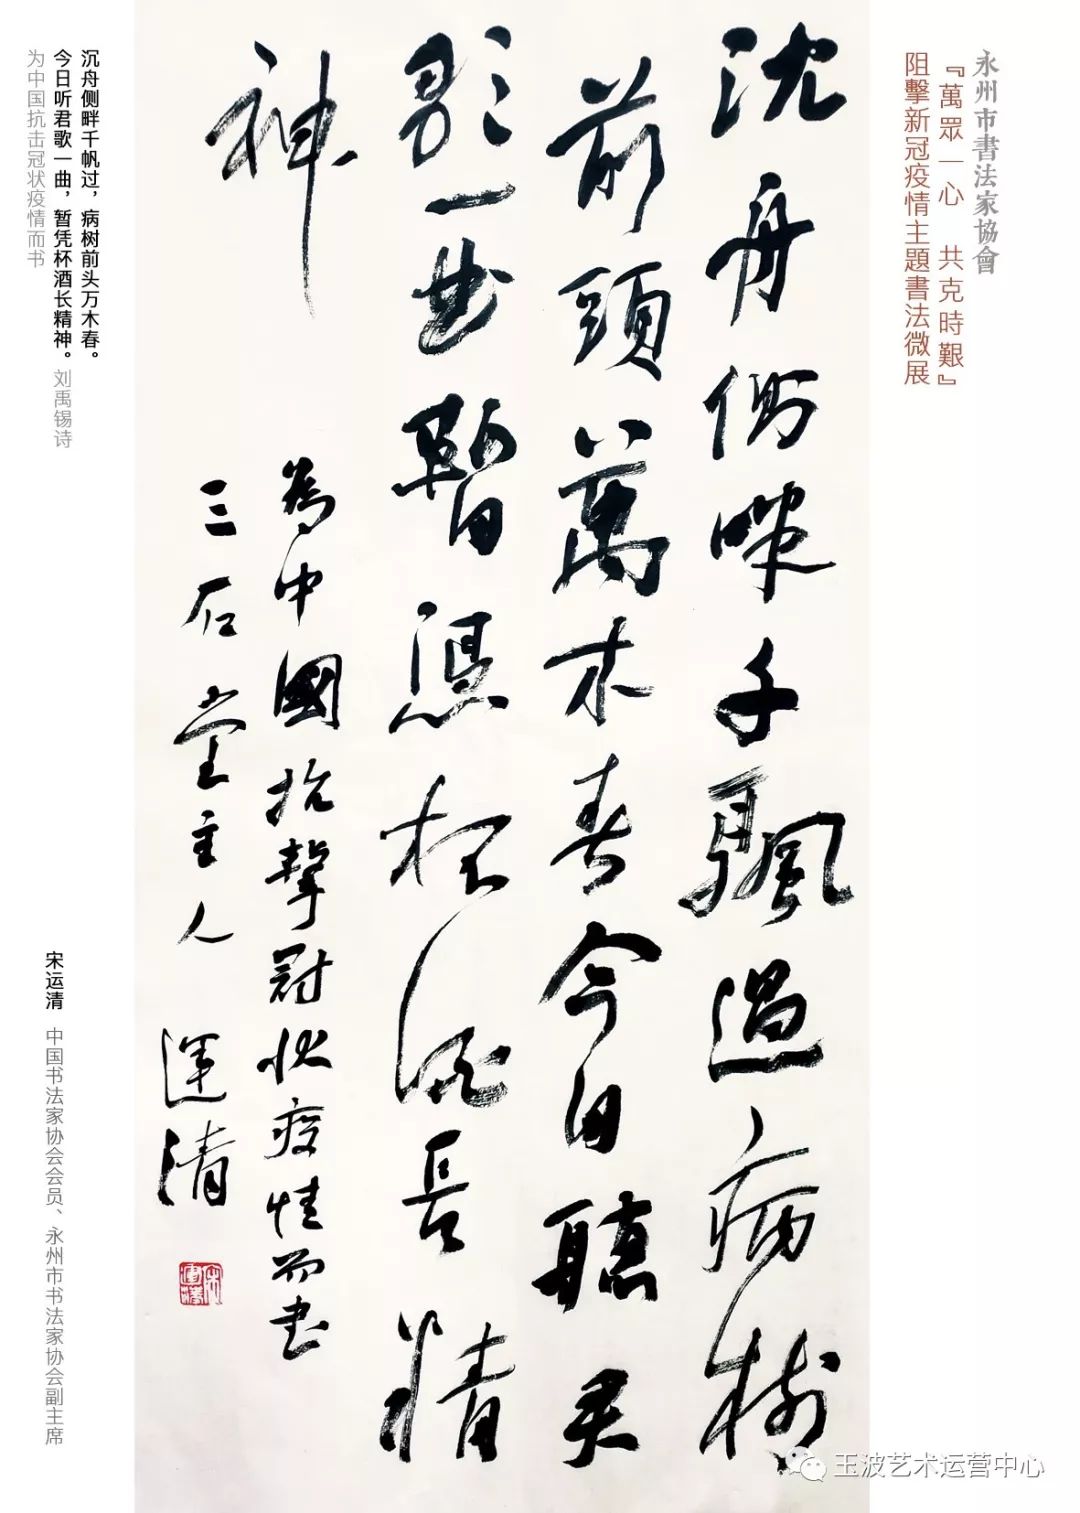 永州市書法家協會
『萬眾一心 共克時艱』
阻擊新冠疫情主題書法微展
沈舟側畔千颿過病樹
前頭萬木春今日聽君
歌一曲暫憑杯酒長精
神
為中國抗擊冠狀疫情而书
三石堂主人 運清
沉舟侧畔千帆过，病树前头万木春。
今日听君歌一曲，暂凭杯酒长精神。刘禹锡诗
为中国抗击冠状疫情而书
宋运清 中国书法家协会会员、永州市书法家协会副主席
玉波艺术运营中心